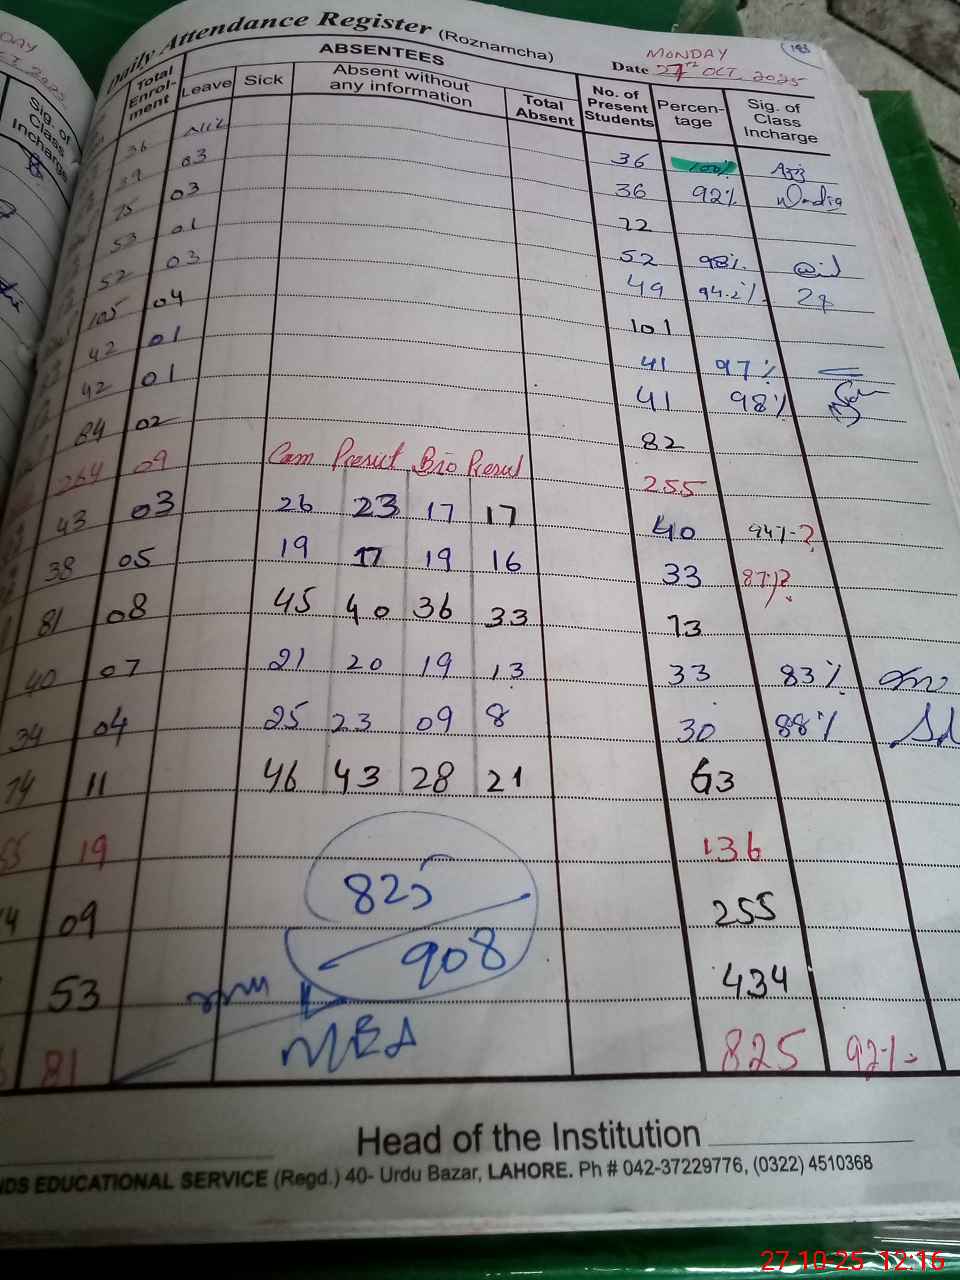 Daily Attendance Register (Roznamcha)
MONDAY
Date 27TH OCT, 2025
ABSENTEES
Total Enrol-ment Leave Sick Absent without any information Total Absent No. of Present Students Percen-tage Sig. of Class Incharge
Sig. of Class Incharge
36 Nil 36 100%
39 03 36 92%
75 03 72
53 01 52 98%
52 03 49 94.2%
105 04 101
42 01 41 97%
42 01 41 98%
84 02 82
264 09 Com Presnt Bio Presnt 255
43 03 26 23 17 17 40 94%-?
38 05 19 17 19 16 33 87%?
81 08 45 40 36 33 73
40 07 21 20 19 13 33 83%
34 04 25 23 09 8 30 88%
74 11 46 43 28 21 63
19 136
825
09 255
908
53 434
81 825 92%
Head of the Institution
EDUCATIONAL SERVICE (Regd.) 40- Urdu Bazar, LAHORE. Ph # 042-37229776, (0322) 4510368
27-10-25 12:16